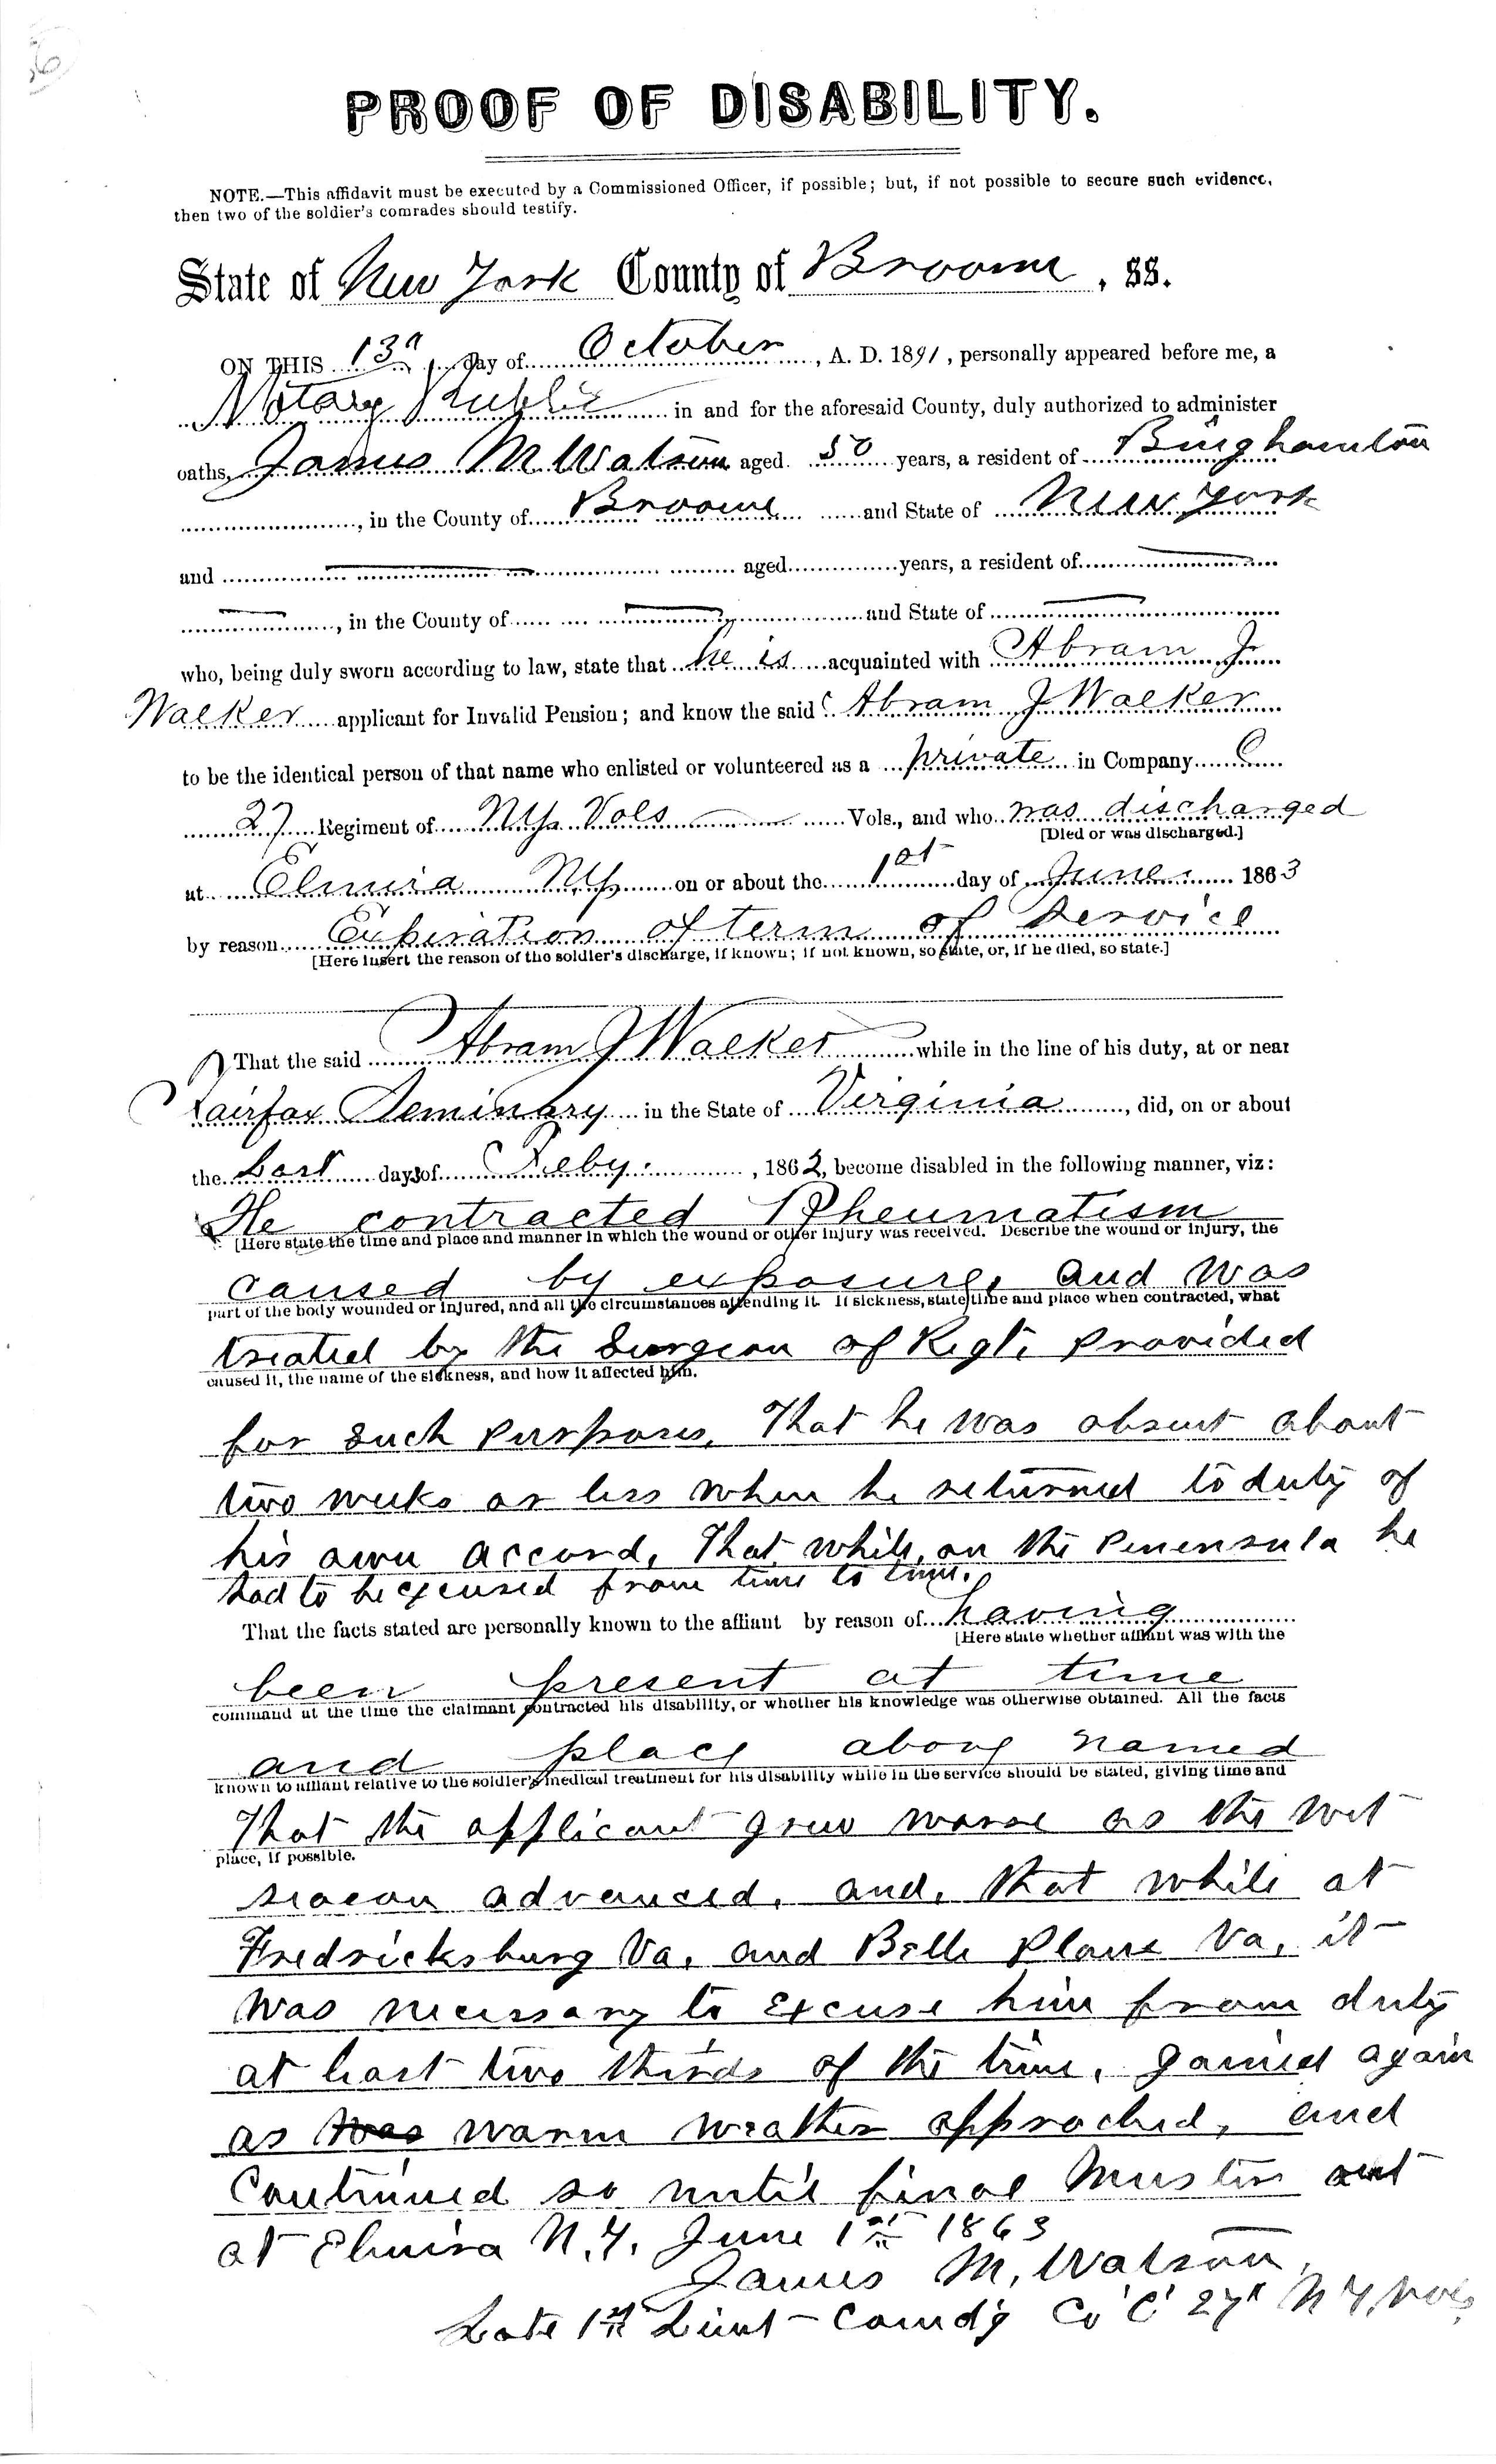 PROOF OF DISABILITY.
NOTE.—This affidavit must be executed by a Commissioned Officer, if possible; but, if not possible to secure such evidence,
then two of the soldier's comrades should testify.
State of New York County of Broome, ss.
ON THIS 13th day of October, A. D. 1891, personally appeared before me, a
Notary Public in and for the aforesaid County, duly authorized to administer
oaths, James M Watson aged 50 years, a resident of Binghamton
, in the County of Broome and State of New York
and aged years, a resident of
, in the County of and State of
who, being duly sworn according to law, state that he is acquainted with Abram J
Walker applicant for Invalid Pension; and know the said Abram J Walker
to be the identical person of that name who enlisted or volunteered as a private in Company C
27 Regiment of NY Vols Vols., and who was discharged
[Died or was discharged.]
at Elmira NY on or about the 1st day of June 1863
by reason Expiration of term of service
[Here insert the reason of the soldier's discharge, if known; if not known, so state, or, if he died, so state.]
That the said Abram J Walker while in the line of his duty, at or near
Fairfax Seminary in the State of Virginia, did, on or about
the Last days of Feby., 1862, become disabled in the following manner, viz:
He contracted Rheumatism
[Here state the time and place and manner in which the wound or other injury was received. Describe the wound or injury, the
caused by exposure, and was
part of the body wounded or injured, and all the circumstances attending it. If sickness, state time and place when contracted, what
treated by the Surgeon of Regt. provided
caused it, the name of the sickness, and how it affected him.
for such purposes. That he was absent about
two weeks or less when he returned to duty of
his own accord, That while, on the Penensula he
had to be excused from time to time.
That the facts stated are personally known to the affiant by reason of having
[Here state whether affiant was with the
been present at time
command at the time the claimant contracted his disability, or whether his knowledge was otherwise obtained. All the facts
and place above named
known to affiant relative to the soldier's medical treatment for his disability while in the service should be stated, giving time and
That the applicant grew worse as the wet
place, if possible.
season advanced, and, that while at
Fredricksburg Va, and Belle Plane Va, it
was necessary to excuse him from duty
at least two thirds of the time, gained again
as was warm weather approched, and
Continued so until final Muster out
at Elmira N.Y. June 1st 1863
James M. Watson,
Late 1st Lieut - Comdg Co 'C' 27th N.Y. Vols